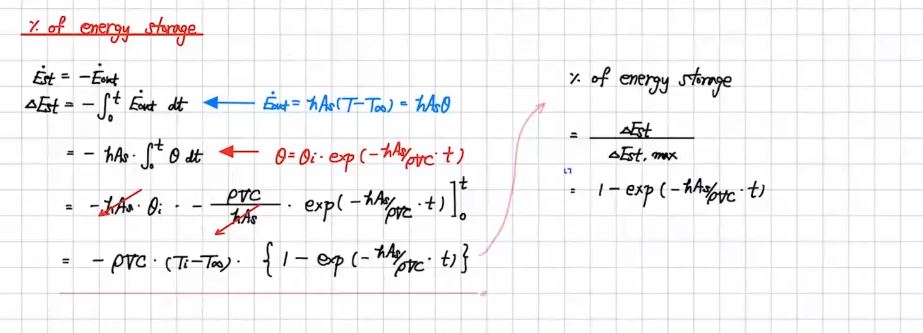 % of energy storage
Ėst = -Ėout
ΔEst = - ∫₀ᵗ Ėout dt ← Ėout = hAs(T-T∞) = hAsθ
= - hAs · ∫₀ᵗ θ dt ← θ = θi · exp(-hAs/ρVC · t)
= - hAs · θi · - ρVC/hAs · exp(-hAs/ρVC · t) ]₀ᵗ
= - ρVC · (Ti-T∞) · { 1 - exp(-hAs/ρVC · t) }
% of energy storage
= ΔEst / ΔEst, max
= 1 - exp(-hAs/ρVC · t)